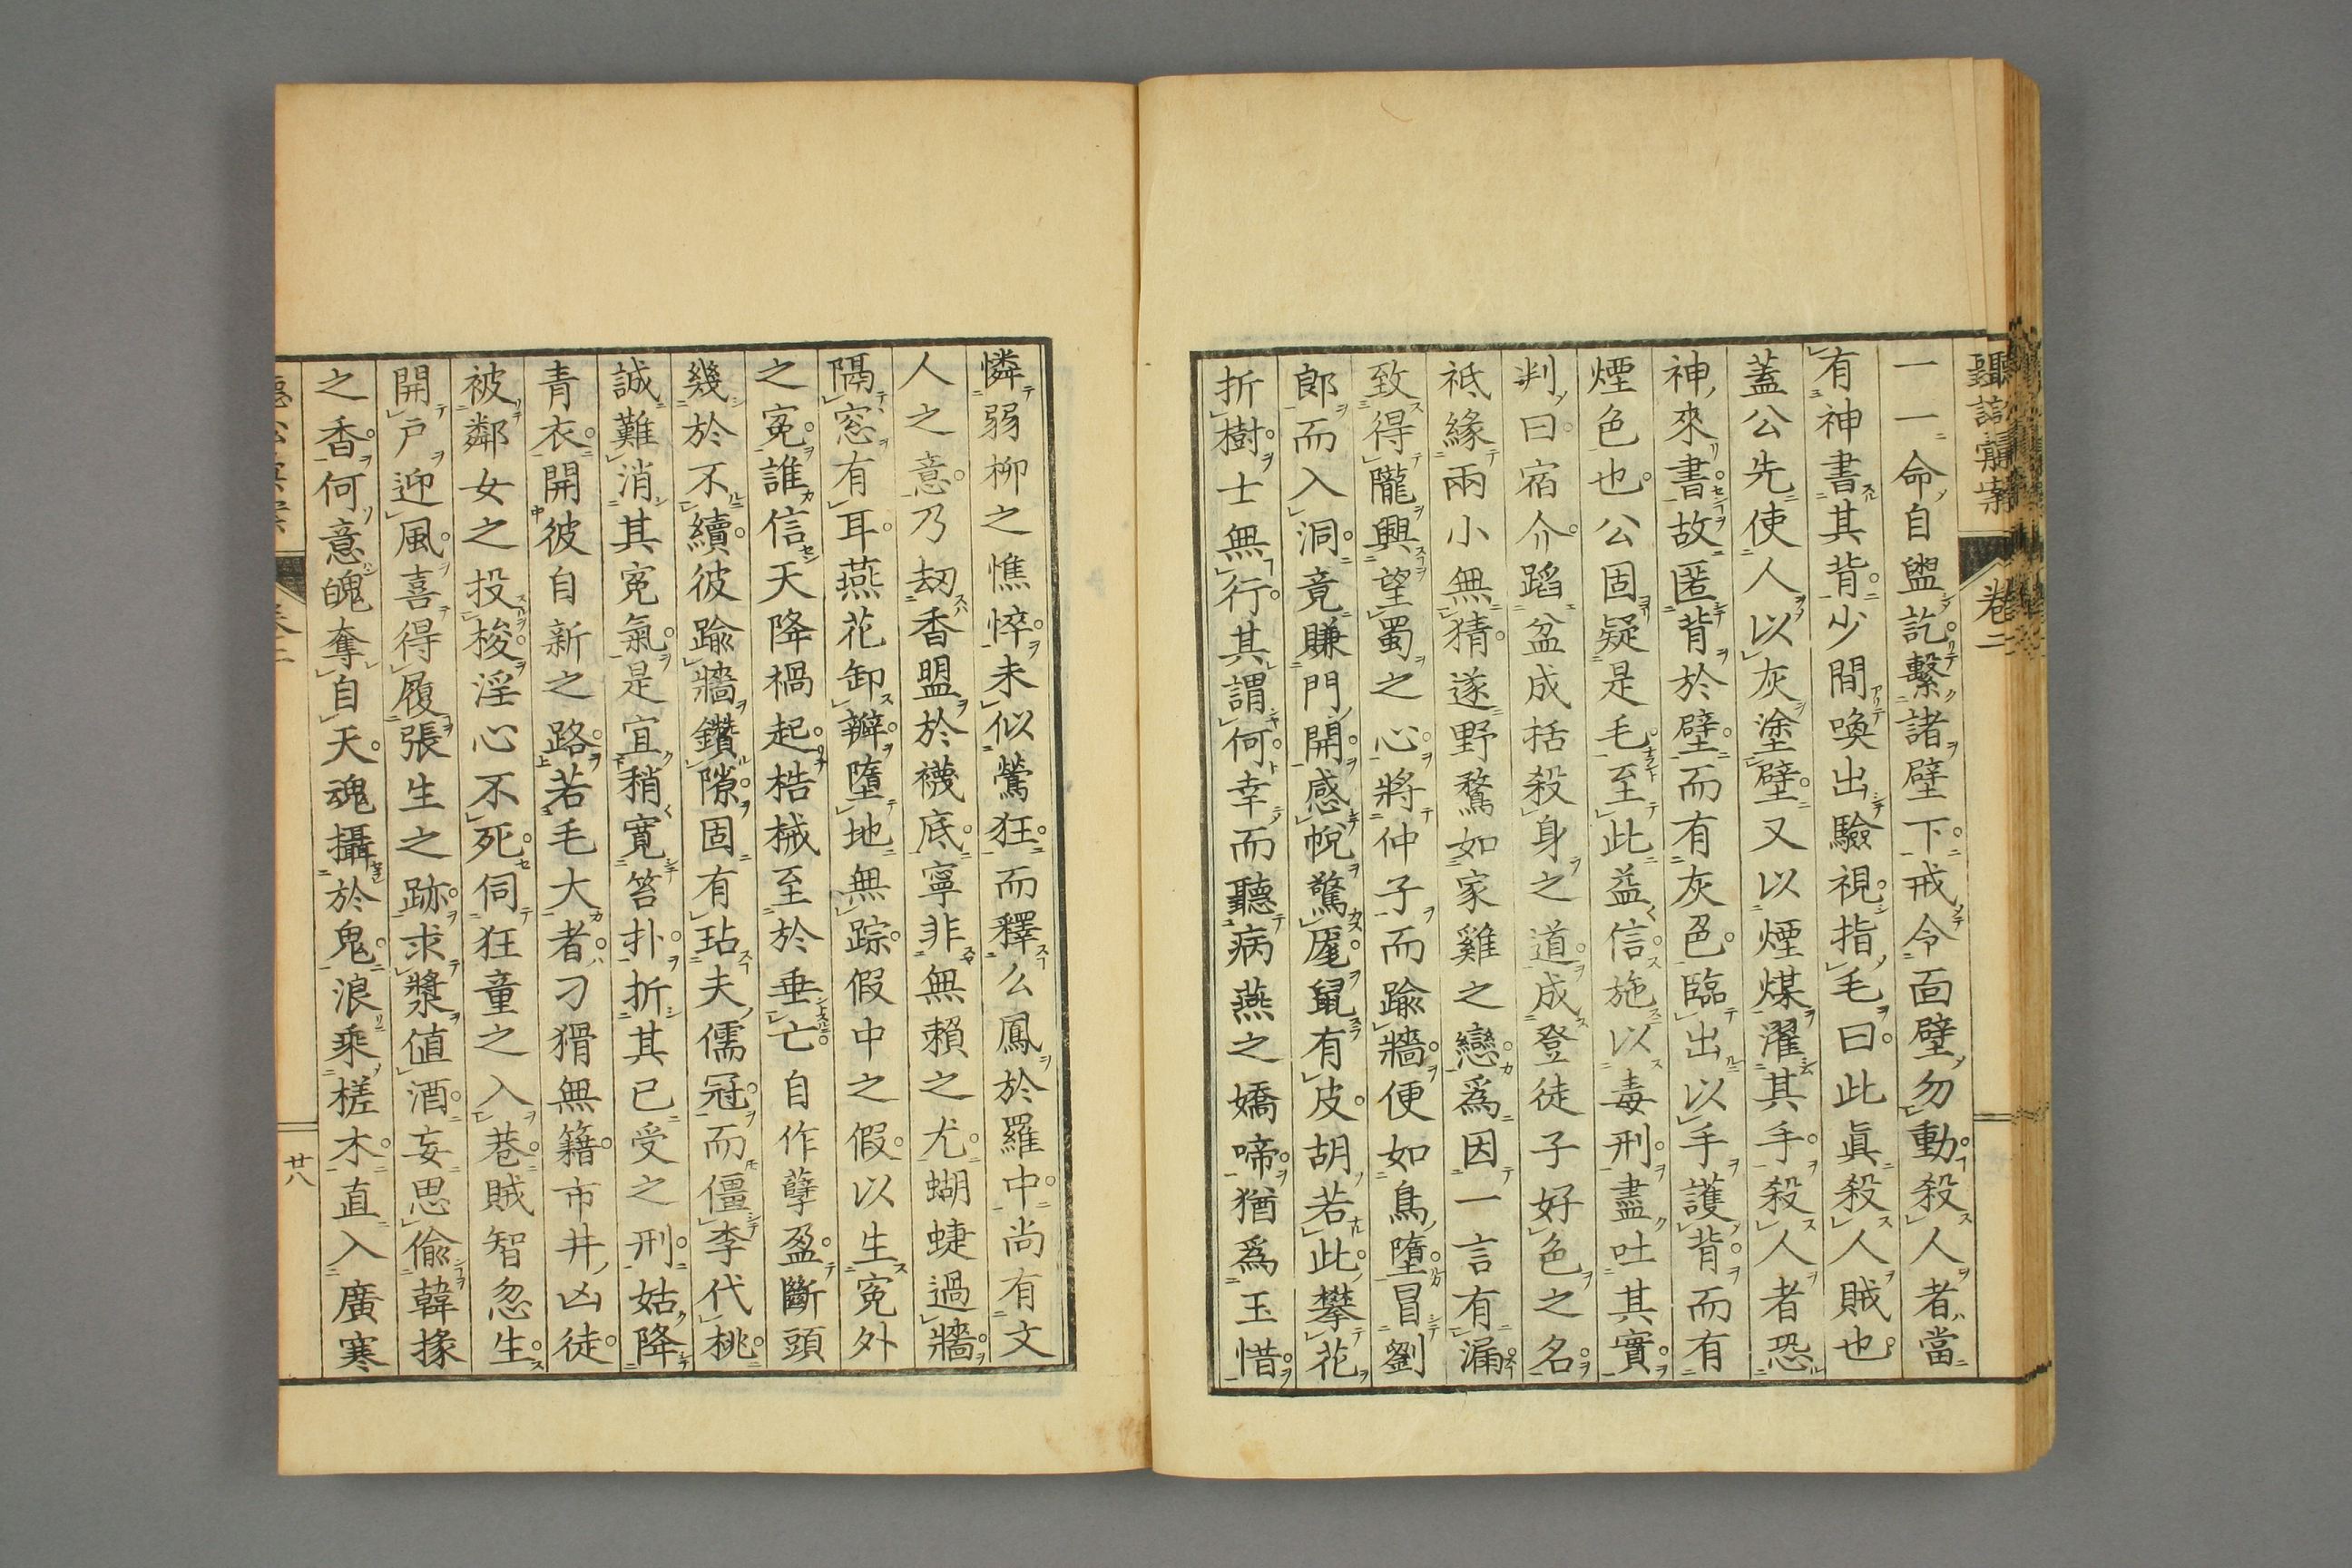 卷二
一一命自盥訖繫諸壁下戒令面壁勿動殺人者當
有神書其背少間喚出驗視指毛曰此眞殺人賊也
蓋公先使人以灰塗壁又以煙煤濯其手殺人者恐
神來書故匿背於壁而有灰色臨出以手護背而有
煙色也公固疑是毛至此益信施以毒刑盡吐其實
判曰宿介蹈盆成括殺身之道成登徒子好色之名
祗緣兩小無猜遂野鶩如家雞之戀爲因一言有漏
致得隴興望蜀之心將仲子而踰牆便如鳥墮冒劉
郎而入洞竟賺門開感帨驚尨鼠有皮胡若此攀花
折樹士無行其謂何幸而聽病燕之嬌啼猶爲玉惜
憐弱柳之憔悴未似鶯狂而釋么鳳於羅中尚有文
人之意乃刧香盟於襪底寧非無賴之尤蝴蜨過牆
隔窓有耳燕花卸瓣墮地無踪假中之假以生寃外
之寃誰信天降禍起梏械至於垂亡自作孽盈斷頭
幾於不續彼踰牆鑽隙固有玷夫儒冠而僵李代桃
誠難消其寃氣是宜稍寬笞扑折其已受之刑姑降
青衣開彼自新之路若毛大者刁猾無籍市井凶徒
被鄰女之投梭淫心不死伺狂童之入巷賊智忽生
開戶迎風喜得履張生之跡求漿値酒妄思偸韓掾
之香何意魄奪自天魂攝於鬼浪乘槎木直入廣寒
廿八